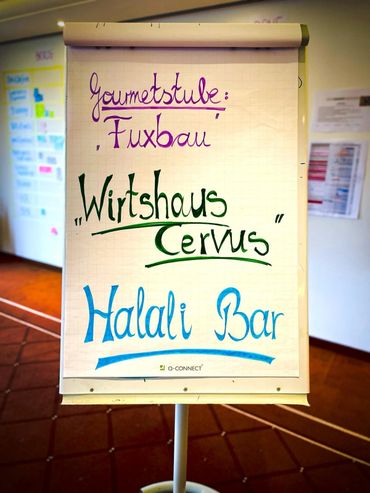 Gourmetstube:
‚Fuxbau
„Wirtshaus
Cervus“
Halali Bar
Q-CONNECT